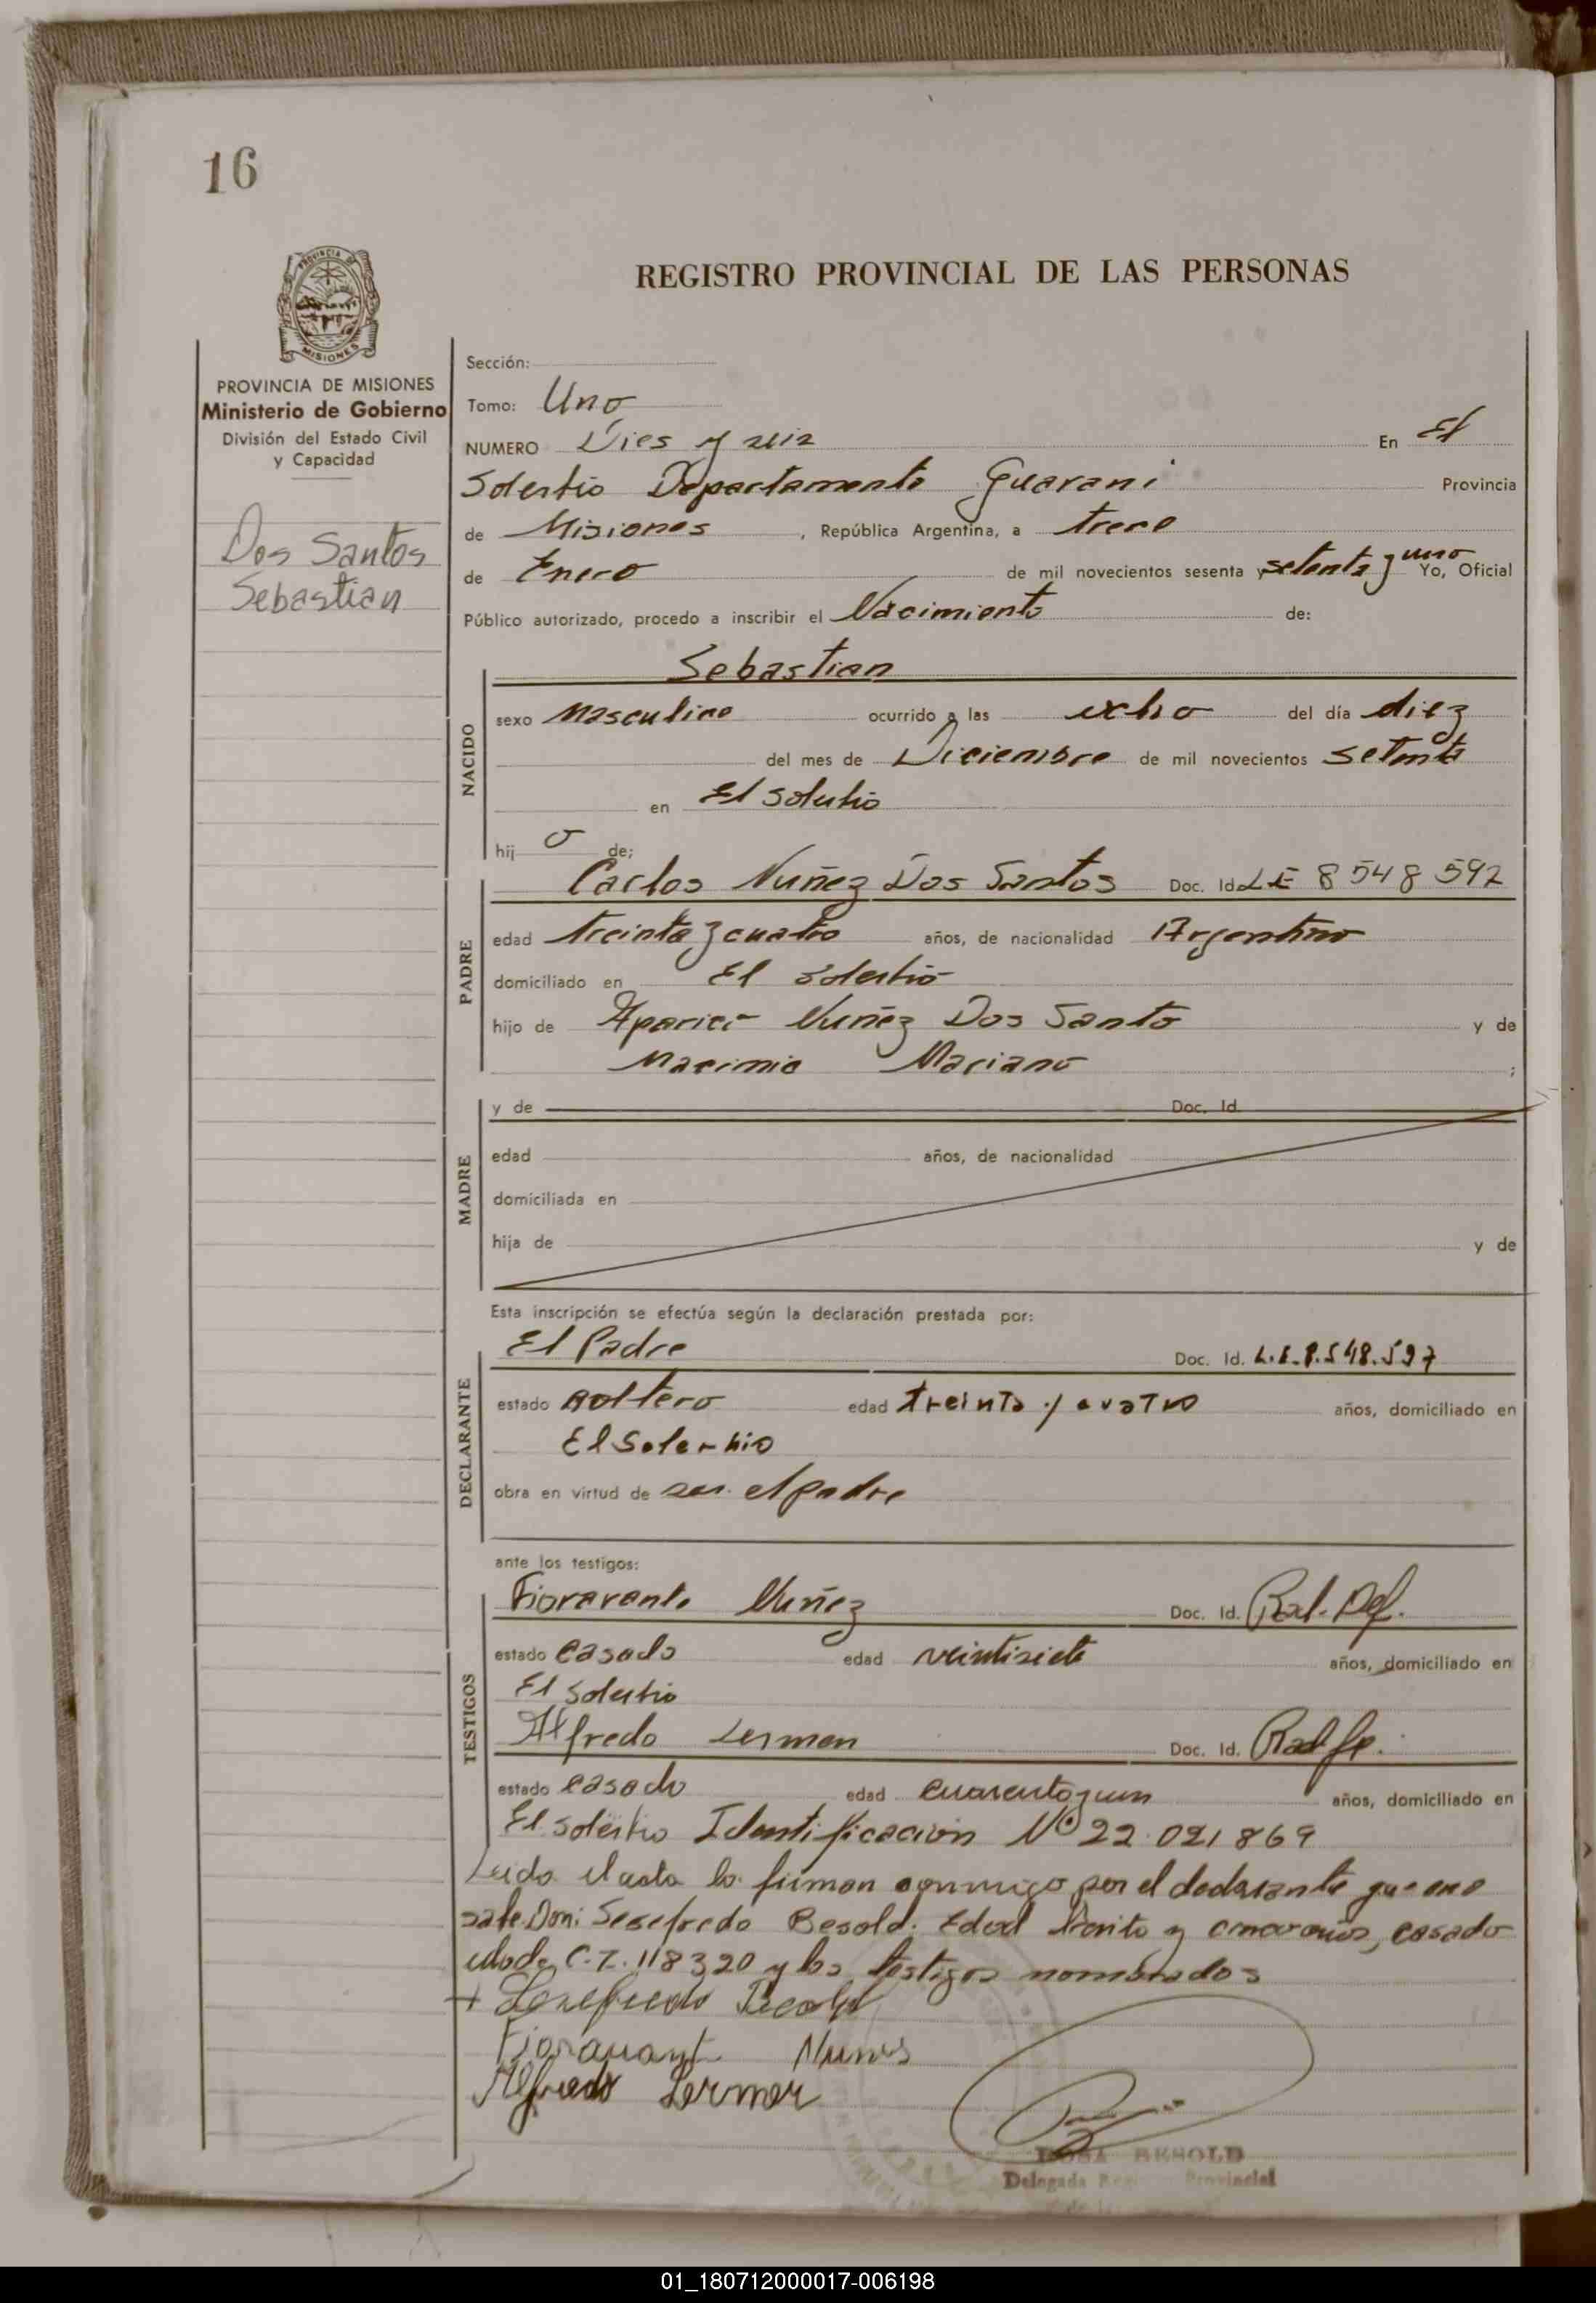 16
PROVINCIA DE
MISIONES
REGISTRO PROVINCIAL DE LAS PERSONAS
PROVINCIA DE MISIONES
Ministerio de Gobierno
División del Estado Civil
y Capacidad
Dos Santos
Sebastian
Sección:
Tomo: Uno
NUMERO Dies y seis En El
Solertio Departamento Guarani Provincia
de Misiones, República Argentina, a trece
de Enero de mil novecientos sesenta y setenta y uno Yo, Oficial
Público autorizado, procedo a inscribir el Nacimiento de:
NACIDO
Sebastian
sexo Masculino ocurrido a las ocho del día diez
del mes de Diciembre de mil novecientos setenta
en El Solertio
hij o de;
PADRE
Carlos Nuñez Dos Santos Doc. Id. LE 8548592
edad treinta y cuatro años, de nacionalidad Argentino
domiciliado en El Solertio
hijo de Aparici Nuñez Dos Santo y de
Marciano ;
MADRE
y de Doc. Id.
edad años, de nacionalidad
domiciliada en
hija de y de
Esta inscripción se efectúa según la declaración prestada por:
DECLARANTE
El Padre Doc. Id. L.E.8.548.597
estado soltero edad treinta y cuatro años, domiciliado en
El Solertio
obra en virtud de ser el padre
ante los testigos:
TESTIGOS
Fioravante Nuñez Doc. Id.
estado casado edad veintisiete años, domiciliado en
El Solertio
Alfredo Lermen Doc. Id.
estado casado edad cuarenta y un años, domiciliado en
El Solertio Identificacion Nº 22.021869
Leida el acta la firman conmigo por el declarante que no
sabe Don: Sesefredo Besold. Edad treinta y cinco años, casado
C.I. 118320 y los testigos nombrados
+ Sesefredo Besold
Fioravant Nunes
Alfredo Lermer
ROSA BESOLD
Delegada Provincial
01_180712000017-006198